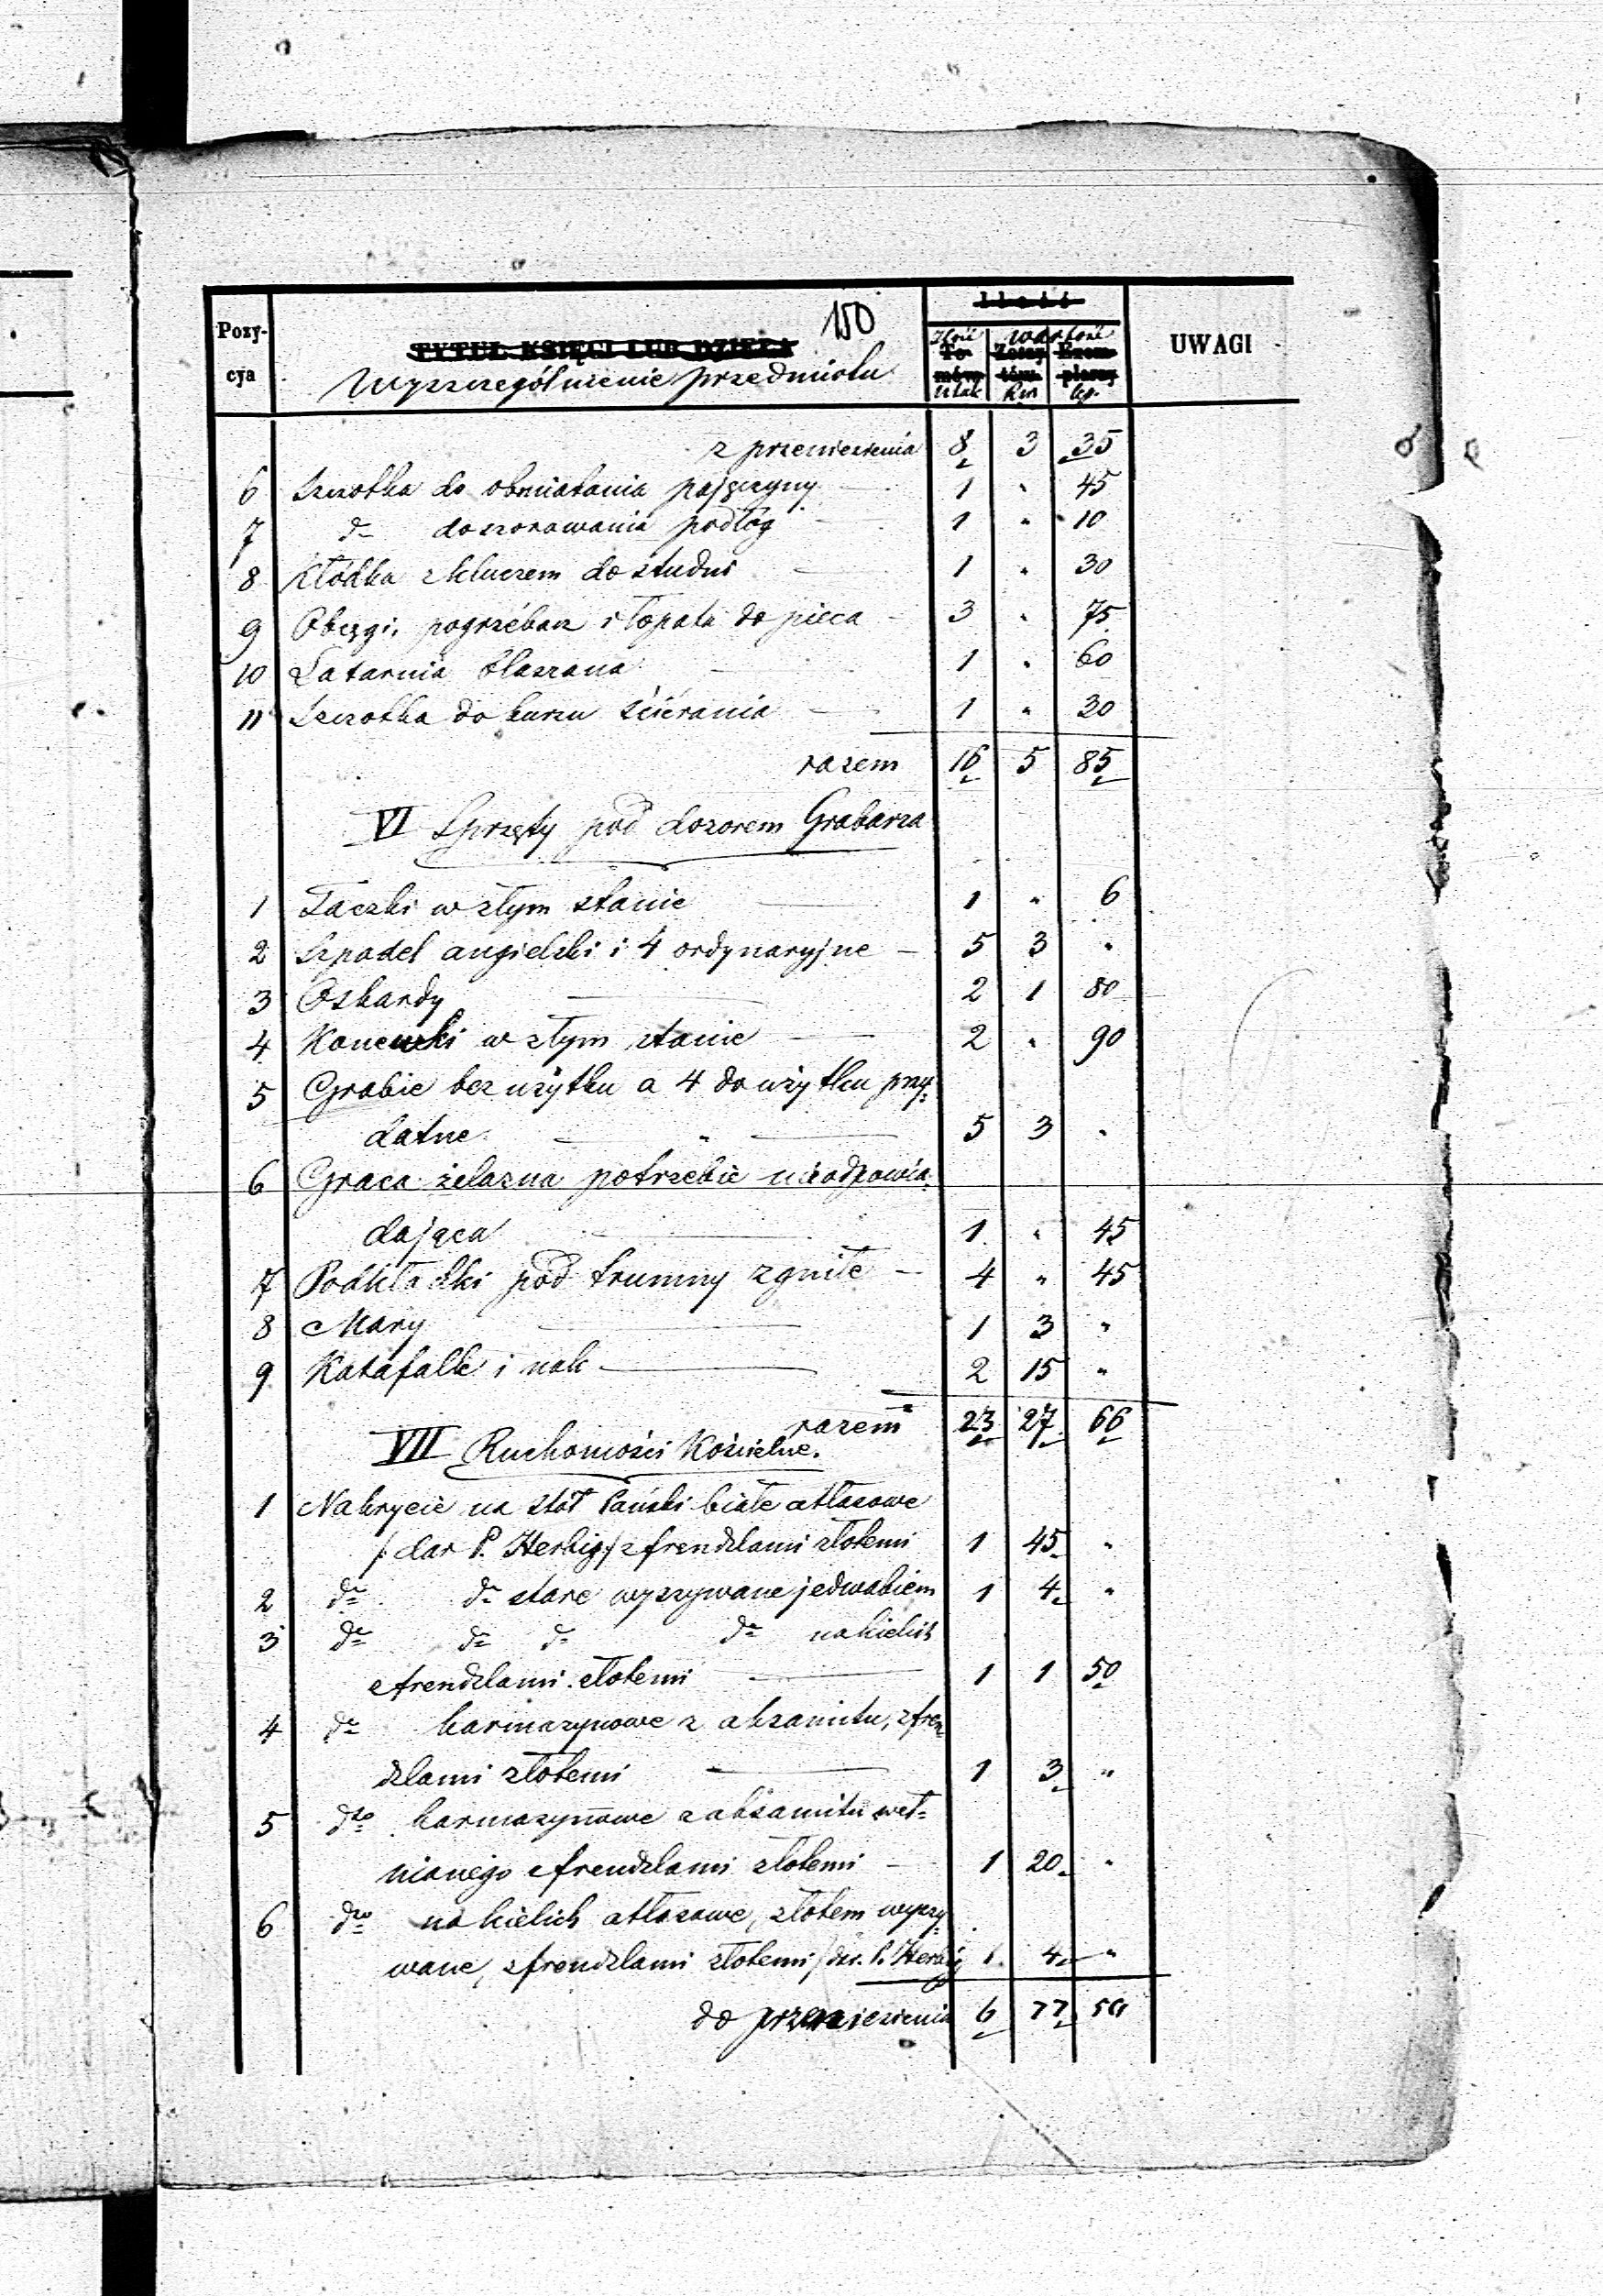 150
Pozy-
cya
TYTUŁ KSIĘGI LUB DZIEŁA
Wyszczególnienie przedmiotu
Ilość
Ilość wartość
To-
mów Zeszy-
tów Exem-
plarzy
sztuk Rsr kp.
UWAGI
z przeniesienia 8 3 35
6 Szczotka do obmiatania pajęczyny — 1 " 45
7 do do szorowania podłóg — 1 " 10
8 Kłódka z kluczem do studni — 1 " 30
9 Obcęgi, pogrzebacz i łopata do pieca — 3 " 75
10 Latarnia blaszana — 1 " 60
11 Szczotka do kurzu ścierania — 1 " 30
razem 16 5 85
VI Sprzęty pod dozorem Grabarza
1 Taczki w złym stanie — 1 " 6
2 Szpadel angielski i 4 ordynaryjne — 5 3 "
3 Oskardy — 2 1 80
4 Konewki w złym stanie — 2 " 90
5 Grabie bez użytku a 4 do użytku przy=
datne — " — 5 3 "
6 Graca żelazna potrzebie nieodpowia=
dająca — 1 " 45
7 Podkładki pod trumny zgniłe — 4 " 45
8 Mary — 1 3 "
9 Katafalk i — 2 15 "
razem 23 27 66
VII Ruchomości Kościelne.
1 Nakrycie na stół Pański białe atłasowe
/dar P. Herbig/ z frendzlami złotemi 1 45 "
2 do do stare wyszywane jedwabiem 1 4 "
3 do do do do na kielich
z frendzlami złotemi — 1 1 50
4 do karmazynowe z aksamitu, z fren
dzlami złotemi — 1 3 "
5 dto karmazynowe z aksamitu weł=
nianego z frendzlami złotemi — 1 20 "
6 dto na kielich atłasowe, złotem wyszy
wane, z frendzlami złotemi /dar P. Herbig 1 4 "
do przeniesienia 6 77 50